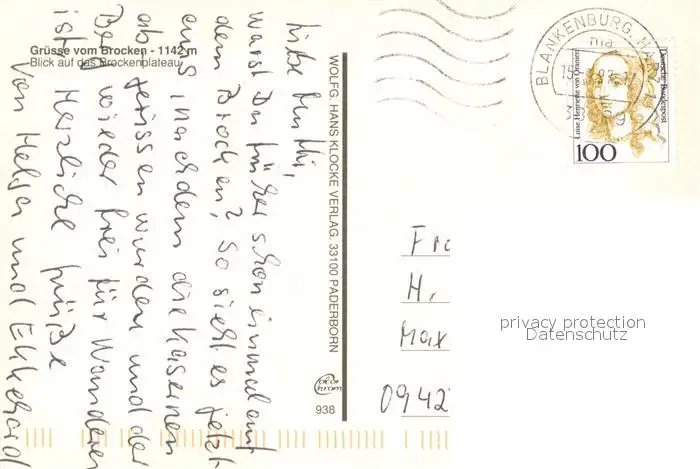 Grüsse vom Brocken - 1142 m
Blick auf das Brockenplateau
Liebe Mutti,
warst Du früher schon einmal auf
dem Brocken? So sieht es jetzt
aus, nachdem die Kasernen
abgerissen wurden und der
Berg wieder frei für Wanderer
ist. Herzliche Grüße
von Helga und Ekkehard
WOLFG. HANS KLOCKE VERLAG, 33100 PADERBORN
938
BLANKENBURG, HARZ
Luise Henriette von Oranien
Deutsche Bundespost
100
Fr
H.
Max
0942
privacy protection
Datenschutz